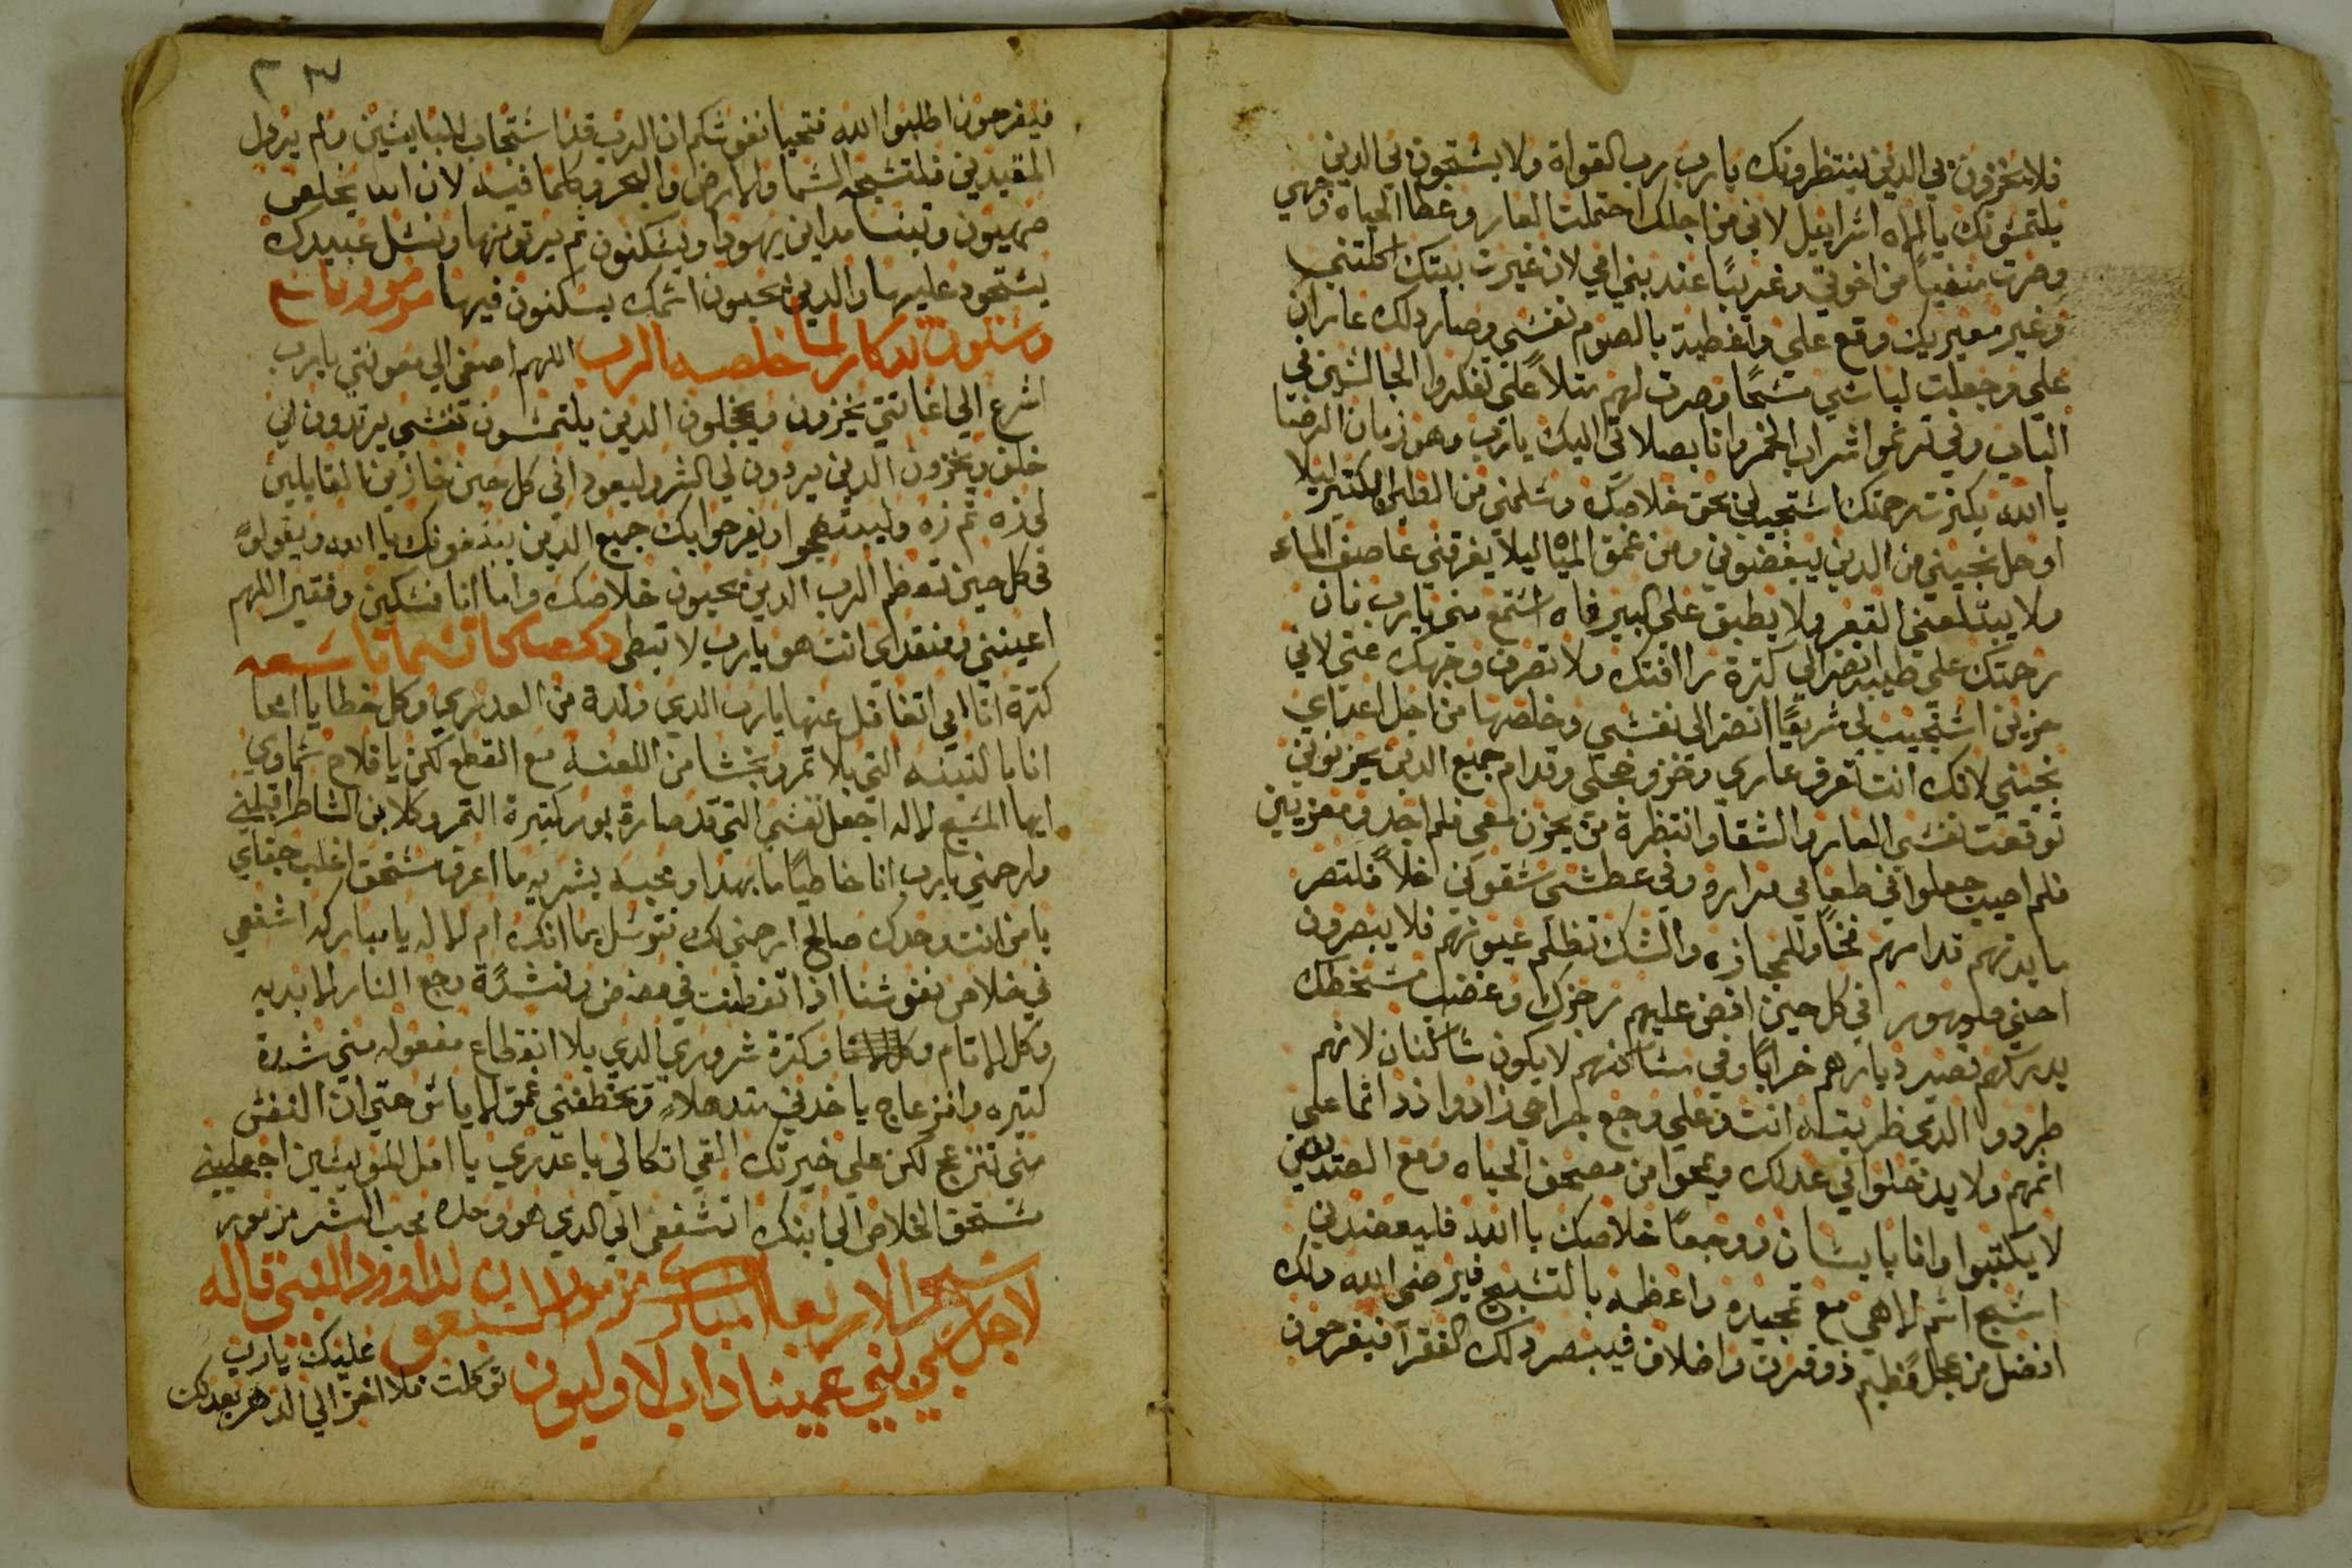 فلا يخزون بي الدين ينتظرونك يا رب رب القواة ولا يستحون بي الدين
يلتمسونك يا إلاه اسراييل لاني من اجلك احتملت العار وغطا الحياه وجهي
وصرت منفياً من اخوتي وغريبًا عند بني امي لان غيرت بيتك اكلتني
وغير معيريك وقع علي وانغطية بالصوم نفسي وصار دلك عاران
علي وجعلت لباسي مسحًا وصرت لهم متلاً علي تفكروا الجالسين في
الباب وفي ترنموا شراب الخمر وانا بصلاتي اليك يا رب وهو زمان الرضا
يا الله بكترت رحمتك استجيب لي بحق خلاصك وسلمني من الطين الكتير ليلا
اوحل نجيني من الدين يبغضوني ومن عمق المياه ليلا يغرقني عاصف الماء
ولا يبتلعني القعر ولا يطبق علي البير فاه استمع مني يا رب فان
رحمتك علي طيبه انضر الي كترة راافتك ولا تصرف وجهك عني لاني
حزين استجيب لي سريعًا انضر الى نفسي وخلصها من اجل اعداي
نجيني لانك انت تعرف عاري وخزي وخجلي وقدام جميع الدين يحزنوني
توقعت نفسي العار والشقا وانتظرة من يحزن معي فلم اجد ومعزيين
فلم اصيب جعلوا في طعامي مراره وفي عطشي سقوني خلاً فلتصر
مايدتهم قدامهم فخًا وللمجازه والشك تظلم عيونهم فلا يبصرون
احني ضهورهم في كل حين افض عليهم رجزك وغضب سخطك
يدركهم تصير ديارهم خرابًا وفي مساكنهم لا يكون ساكنان لانهم
طردوا الدي ظربته انت وعلي وجع جراحي زادوا زد اثما علي
اثمهم ولا يدخلوا في عدلك ويمحوا من مصحف الحياه ومع الصديقين
لا يكتبوا وانا بايسان ووجعًا خلاصك يا الله فليعضدني
اسبح اسم إلاهي مع تمجيده واعظمه بالتسبيح فيرضى الله دلك
افضل من عجل فطيم ذو قرن واضلاف فيبصر دلك الفقرا فيفرحون
فيفرحون اطلبوا الله فتحيا نفوسكم ان الرب قد استجاب للبايسين ولم يردل
المقيدين فلتسبحه السما والارض والبحر وكلما فيه لان الله يخلص
صهيون وتبنا مداين يهودا ويسكنون ثم يرتونها ونسل عبيدك
يستحود عليها والدين يحبون اسمك يسكنون فيها مزمور تاسع
وستون تدكار لما خلصه الرب اللهم اصغي الي معونتي يا رب
اسرع الي اغاتتي يخزون ويخجلون الدين يلتمسون نفسي يرتدون الي
خلف ويخزون الدين يريدون لي الشر وليعودا في كل حين خازين القايلين
لي زه تم زه وليبتهجوا ويفرحوا بك جميع الدين يبتغونك يا الله ويقولو
في كل حين تعظم الرب الدين يحبون خلاصك واما انا فمسكين وفقير اللهم
اعينني ومنقدي انت هو يا رب لا تبطي
كترة اتامي اتغافل عنها يا رب الدي ولدة من العدري وكل خطايا امحا
انا بالتينه التي بلا تمر وبخشا من اللعنه مع القطع لكن يا فلاح سماوي
ايها المسيح الاله اجعل نفسي التي قد صارة بور كتيرة التمر وكلابن الشاطر اقبلني
وارحمني يا رب انا خاطيًا
يا من انت وحدك صالح ارحمني لك نتوسل بما انك ام الاله يا مباركه اشفعي
في خلاص نفوسنا
وكل الاتام وكترة شروري الدي بلا انقطاع مفعوله مني شدة
كتيره وانزعاج ياخدني مندهلاً وتخطفني عمق الاياس حتي ان النفس
مني تنزعج لكن علي خيرتك القي اتكالي يا عدري يا امل المويسين اجعليني
مستحق الخلاص الي ابنك اتشفعي الي الدي هو وحده محب البشر مزمور
مزمور السبعون لداوود النبي قاله
لاجل بني عميناداب الاوليون عليك يا رب
توكلت فلا اخزا الي الدهر بعدلك